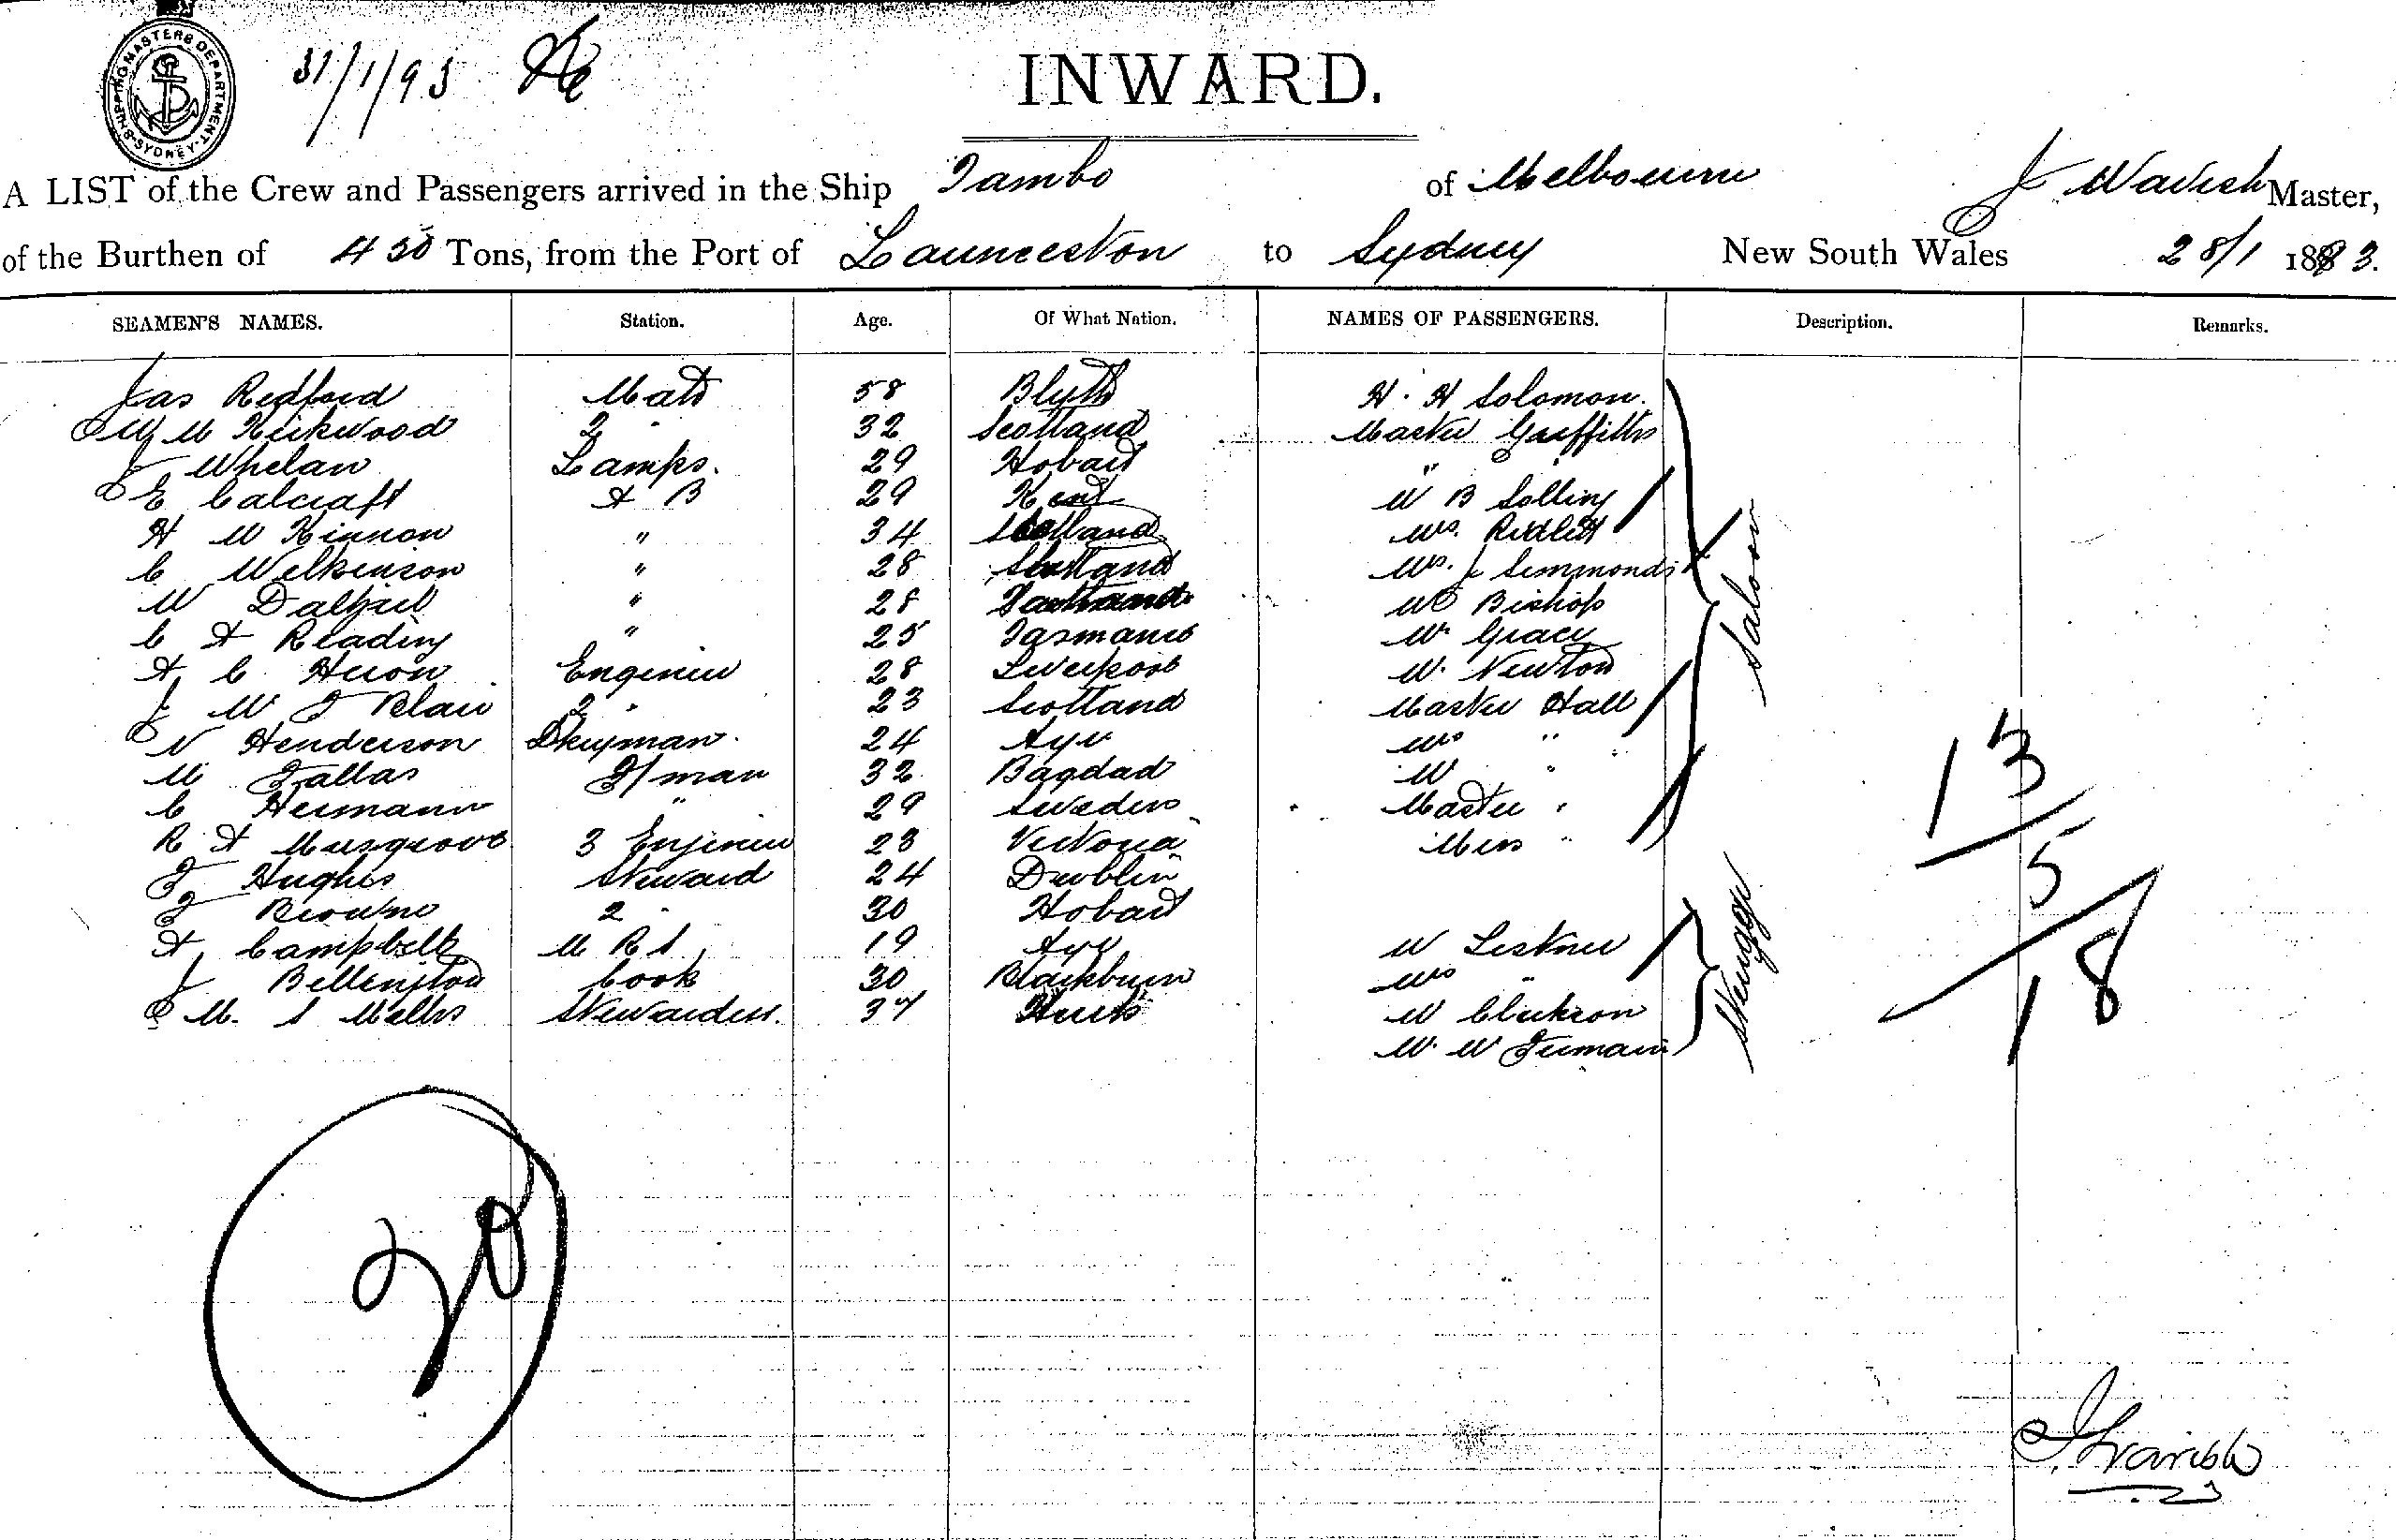 SHIPPING MASTERS DEPARTMENT SYDNEY
31/1/93
INWARD.
A LIST of the Crew and Passengers arrived in the Ship Tambo of Melbourne J Wavish Master,
of the Burthen of 430 Tons, from the Port of Launceston to Sydney New South Wales 28/1 1893.
SEAMEN'S NAMES. Station. Age. Of What Nation. NAMES OF PASSENGERS. Description. Remarks.
Jas Redford Mate 58 Blyth H. H Solomon.
Kirkwood 2 " 32 Scotland Master Griffiths
J Whelan Lamps. 29 Hobart " "
E Calcraft A B 29 Kent W B Solling
H M Kinnon " 34 Scotland Mrs.
C Wilkinson " 28 Shetland Mrs. J Simmonds
W Dalziel " 28 Mr Bishop
C A Reading " 25 Tasmania Mr Gracy
A C Heron Engineer 28 Liverpool Mr. Newton
J W T Blair 2 " 23 Scotland Master Hall
N Henderson Dkeyman. 24 Ayr Mrs "
M Fallas F/man 32 Bagdad M "
C Hermann " 29 Sweden Master "
R A Musgrove 3 Enjineer 23 Victoria Miss "
F Hughes Steward 24 Dublin
F Browne 2 " 30 Hobart
A Campbell M R S 19 Ayr M
J Billington Cook 30 Blackburn Mrs "
M. S Mills Stewardess. 37 Mr Clarkson
Mr. W
Saloon
Steerage
13
5
18
20
J. Wavish